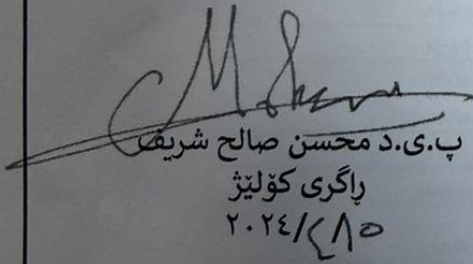 پ.ی.د محسن صالح شریف
ڕاگری کۆلێژ
٢٠٢٤/٤/١٥